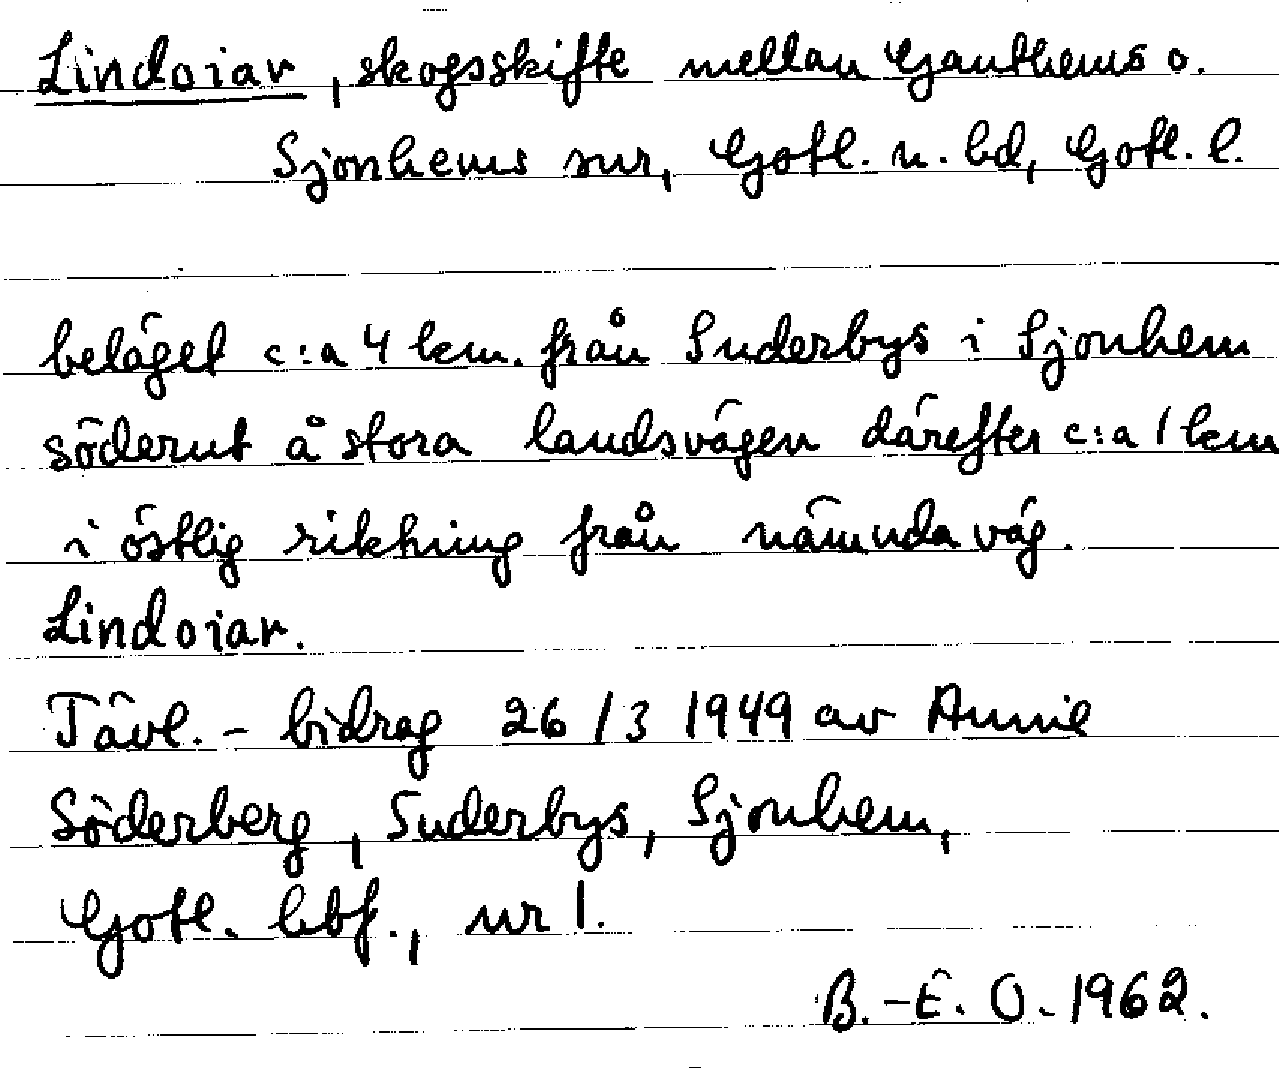 Lindoiar, skogsskifte mellan Ganthems o.
Sjonhems snr, Gotl. n. hd, Gotl. l.
beläget c:a 4 km. från Suderbys i Sjonhem
söderut å stora landsvägen därefter c:a 1 km
i östlig riktning från nämnda väg.
Lindoiar.
Tävl.- bidrag 26/3 1949 av Annie
Söderberg, Suderbys, Sjonhem,
Gotl. hbf., nr 1.
B.-E. O. 1962.